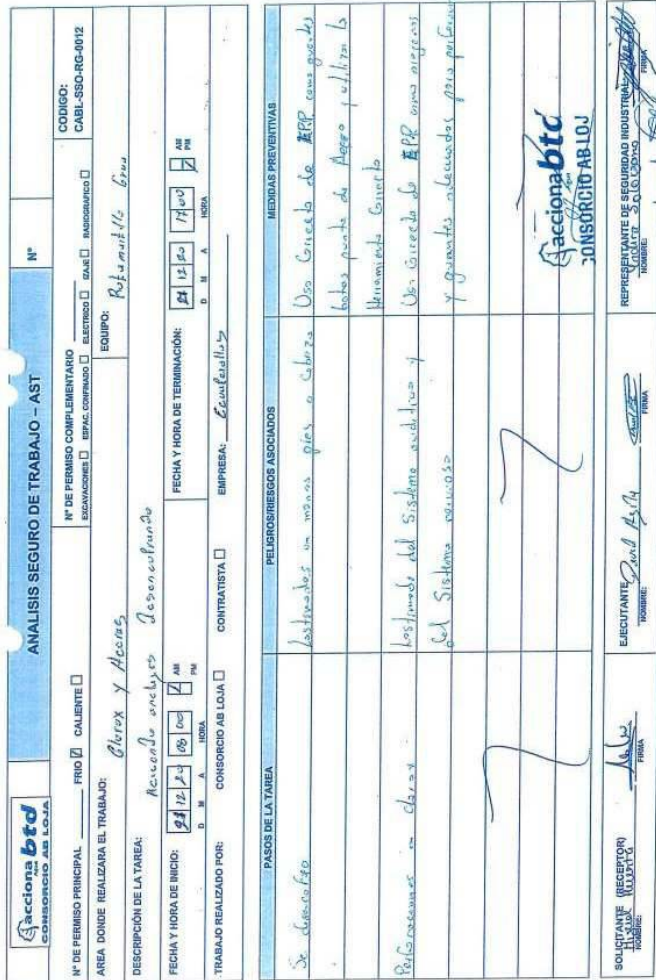 acciona btd
CONSORCIO AB LOJA
ANALISIS SEGURO DE TRABAJO – AST
N°
CODIGO:
CABL-SSO-RG-0012
N° DE PERMISO PRINCIPAL
FRIO
CALIENTE
N° DE PERMISO COMPLEMENTARIO
EXCAVACIONES
ESPAC. CONFINADO
ELECTRICO
IZAJE
RADIOGRAFICO
AREA DONDE REALIZARA EL TRABAJO:
y Aceras
EQUIPO:
Rotomartillo Grua
DESCRIPCIÓN DE LA TAREA:
anclajes desencofrando
FECHA Y HORA DE INICIO:
12 20 08 00
AM
PM
D M A HORA
FECHA Y HORA DE TERMINACIÓN:
12 20 17 00
AM
PM
D M A HORA
TRABAJO REALIZADO POR:
CONSORCIO AB LOJA
CONTRATISTA
EMPRESA:
PASOS DE LA TAREA
PELIGROS/RIESGOS ASOCIADOS
MEDIDAS PREVENTIVAS
Se
manos pies o Cabeza
Uso Correcto de EPP como guantes
botas punta de Acero y utilizar la
Herramienta Correcta
Perforaciones
del Sistema auditivo y
del Sistema nervioso
Uso Correcto de EPP como
y guantes adecuados para
acciona btd
CONSORCIO AB LOJ
SOLICITANTE (RECEPTOR)
NOMBRE:
FIRMA
EJECUTANTE
David
NOMBRE:
FIRMA
REPRESENTANTE DE SEGURIDAD INDUSTRIAL
NOMBRE:
FIRMA